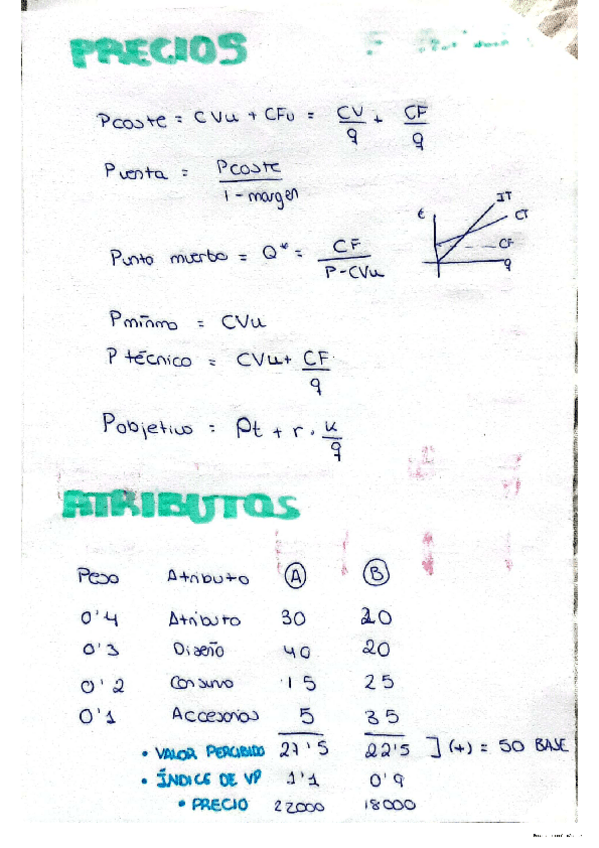 PRECIOS
Pcoste = CVu + CFu = CV/q + CF/q
Pventa = Pcoste / 1 - margen
Punto muerto = Q* = CF / P-CVu
€ IT CT CF q
Pmínmo = CVu
P técnico = CVu + CF/q
Pobjetivo = Pt + r · k/q
ATRIBUTOS
Peso Atributo A B
0'4 Atributo 30 20
0'3 Diseño 40 20
0'2 Consumo 15 25
0'1 Accesorios 5 35
• VALOR PERCIBIDO 27'5 22'5 ] (+) = 50 BASE
• ÍNDICE DE VP 1'1 0'9
• PRECIO 22000 18000